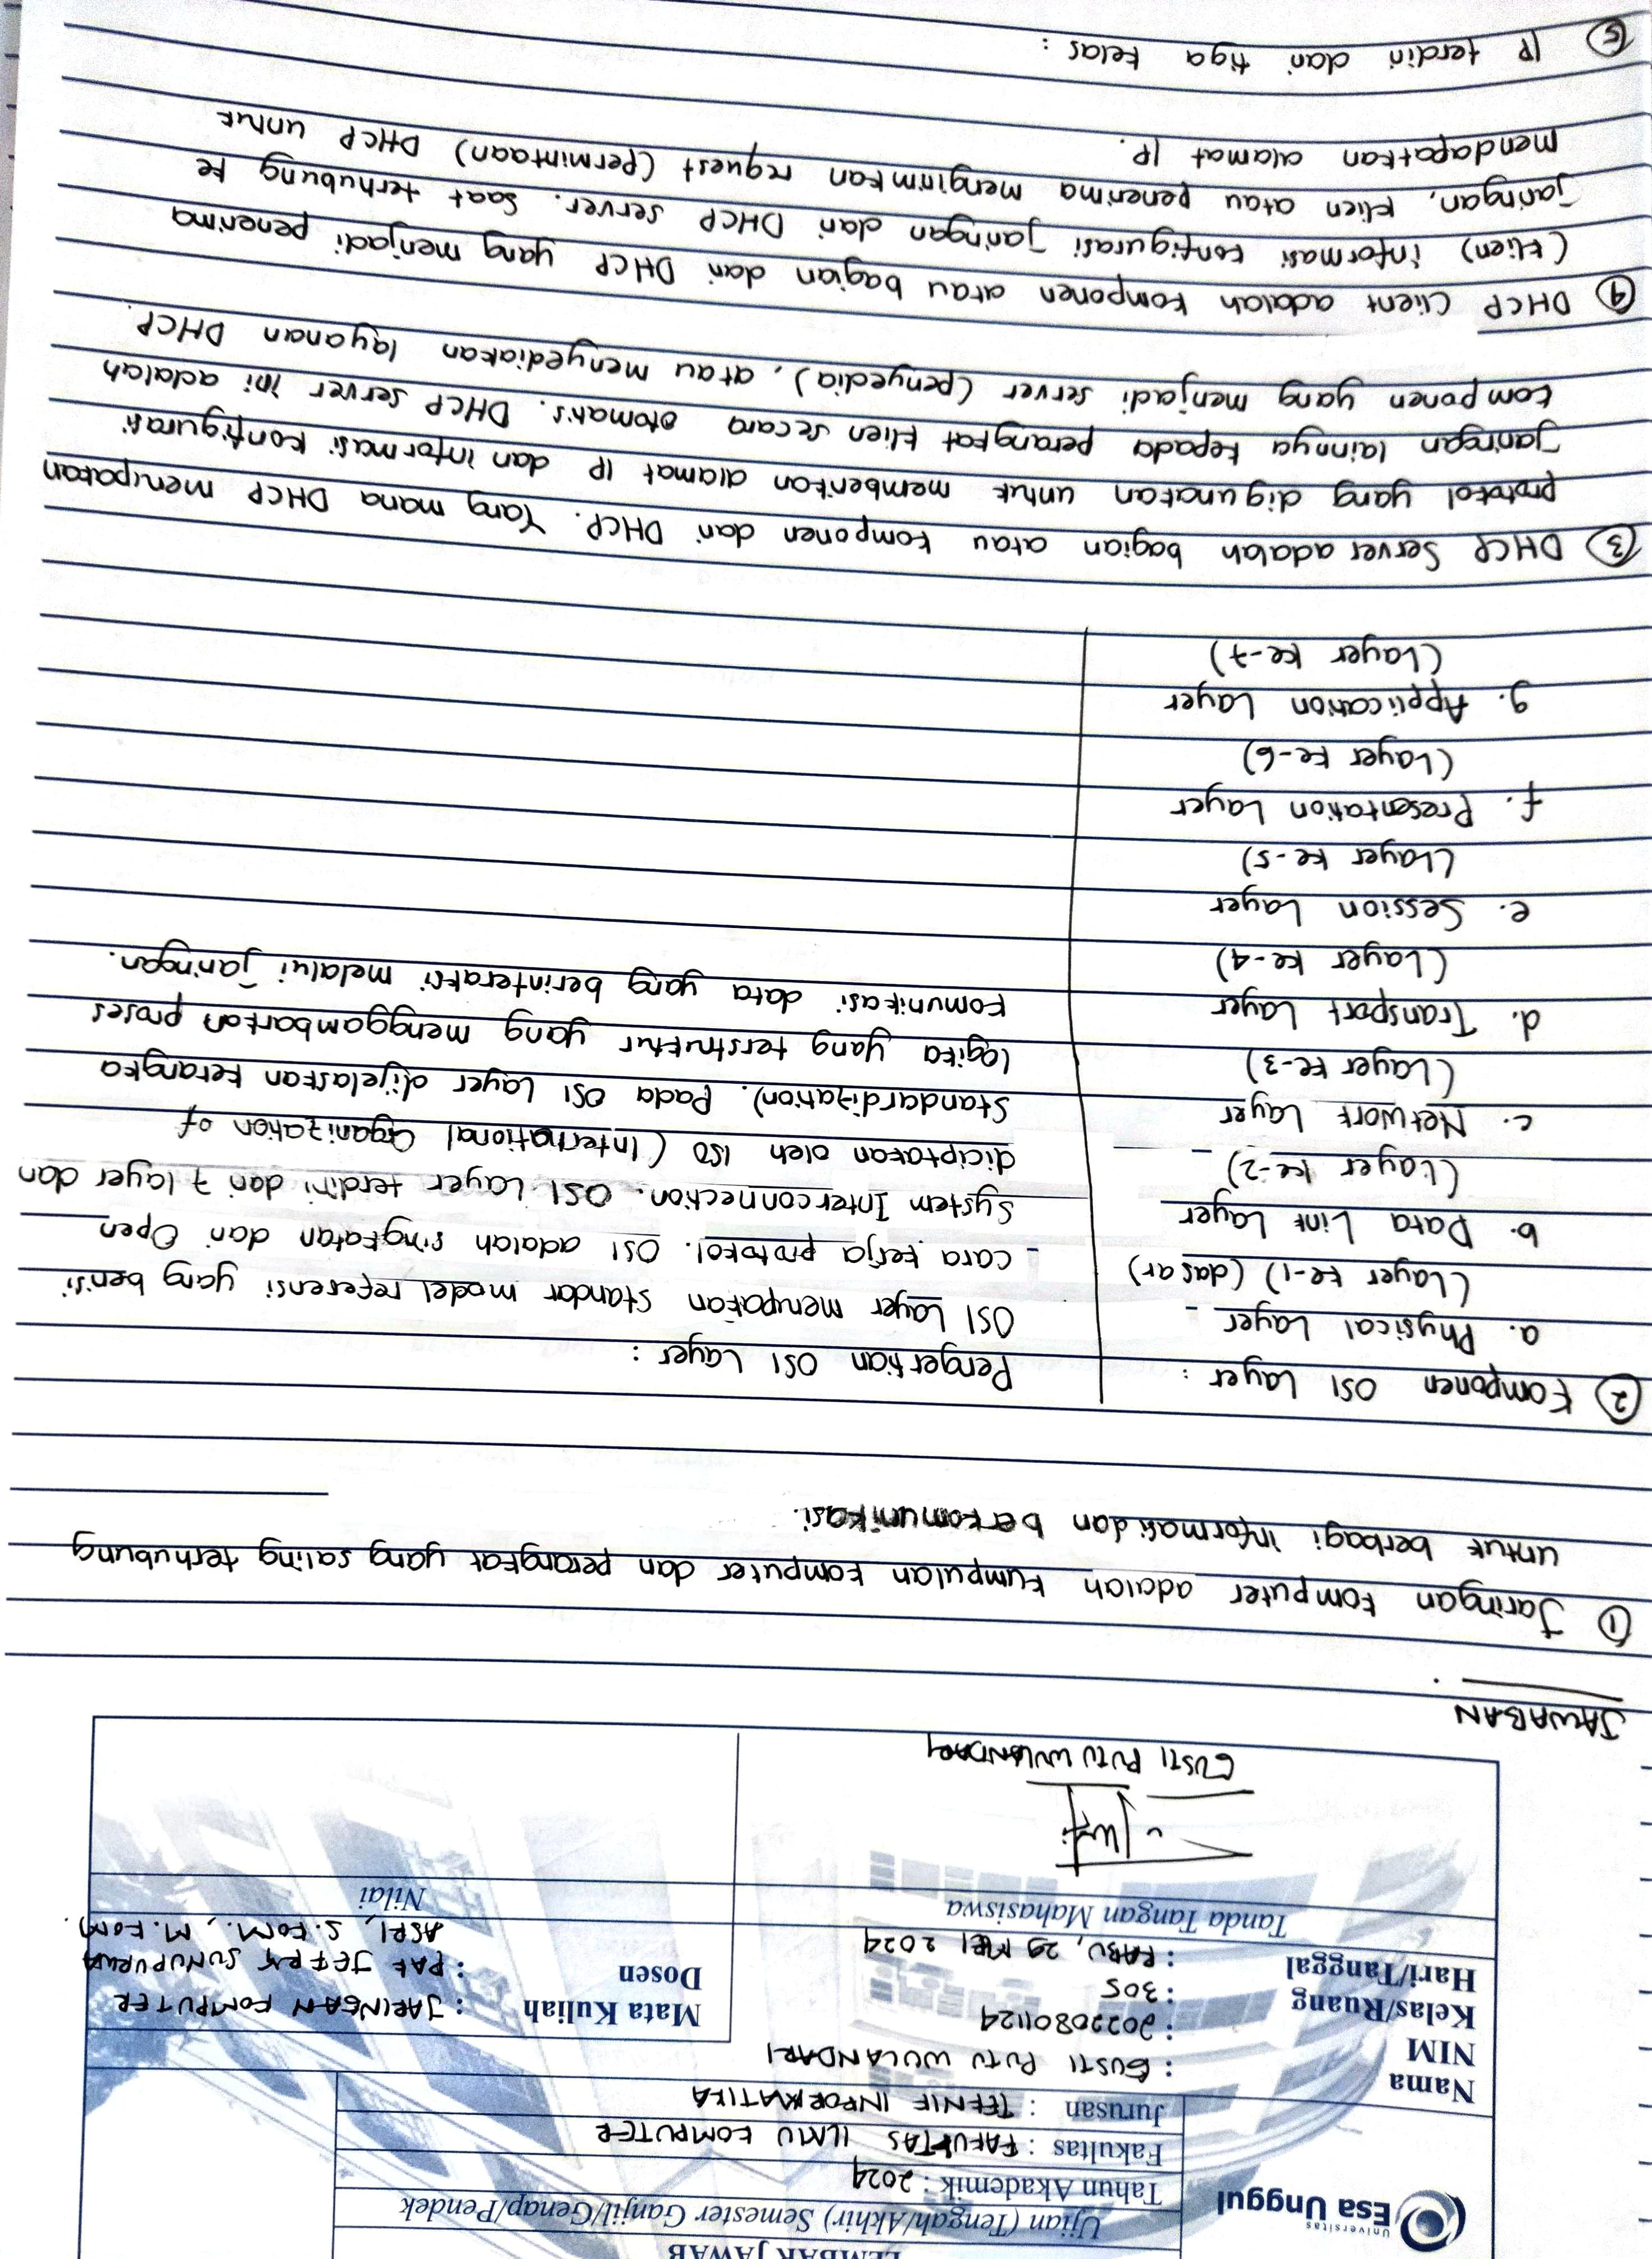 LEMBAR JAWAB
Universitas
Esa Unggul
Ujian (Tengah/Akhir) Semester Ganjil/Genap/Pendek
Tahun Akademik : 2024
Fakultas : FAKULTAS ILMU KOMPUTER
Jurusan : TEKNIK INFORMATIKA
Nama : GUSTI PUTU WULANDARI
NIM : 20220801124
Kelas/Ruang : 305
Hari/Tanggal : RABU, 29 MEI 2024
Mata Kuliah : JARINGAN KOMPUTER
Dosen : PAK JEFRY SUNUPURWA
ASRI, S.KOM., M.KOM.
Tanda Tangan Mahasiswa
Nilai
GUSTI PUTU WULANDARI
JAWABAN
1 Jaringan komputer adalah kumpulan komputer dan perangkat yang saling terhubung
untuk berbagi informasi dan berkomunikasi.
2 Komponen OSI Layer :
a. Physical Layer
(Layer ke-1) (dasar)
b. Data Link Layer
(Layer ke-2)
c. Network Layer
(Layer ke-3)
d. Transport Layer
(Layer ke-4)
e. Session Layer
(Layer ke-5)
f. Presentation Layer
(Layer ke-6)
g. Application Layer
(Layer ke-7)
Pengertian OSI Layer :
OSI Layer merupakan standar model referensi yang berisi
cara kerja protokol. OSI adalah singkatan dari Open
System Interconnection. OSI Layer terdiri dari 7 layer dan
diciptakan oleh ISO (International Organization of
Standardization). Pada OSI Layer dijelaskan kerangka
logika yang terstruktur yang menggambarkan proses
komunikasi data yang berinteraksi melalui jaringan.
3 DHCP Server adalah bagian atau komponen dari DHCP. Yang mana DHCP merupakan
protokol yang digunakan untuk memberikan alamat IP dan informasi konfigurasi
jaringan lainnya kepada perangkat klien secara otomatis. DHCP server ini adalah
komponen yang menjadi server (penyedia), atau menyediakan layanan DHCP.
4 DHCP Client adalah komponen atau bagian dari DHCP yang menjadi penerima
(klien) informasi konfigurasi jaringan dari DHCP server. Saat terhubung ke
jaringan, klien atau penerima mengirimkan request (permintaan) DHCP untuk
mendapatkan alamat IP.
5 IP terdiri dari tiga kelas :